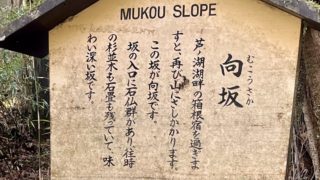 MUKOU SLOPE
向坂
むこうさか
芦ノ湖湖畔の箱根宿を過ぎま
すと、再び山にさしかかります。
この坂が向坂です。
坂の入口に石仏群があり、往時
の杉並木も石畳も残っていて、味
わい深い坂です。